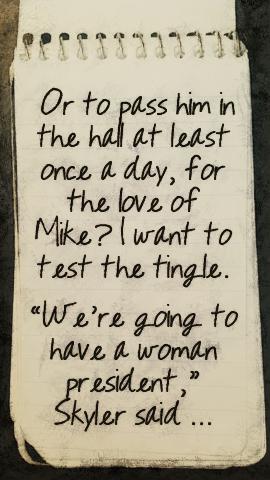 Or to pass him in
the hall at least
once a day, for
the love of
Mike? I want to
test the tingle.
“We’re going to
have a woman
president,”
Skyler said ...